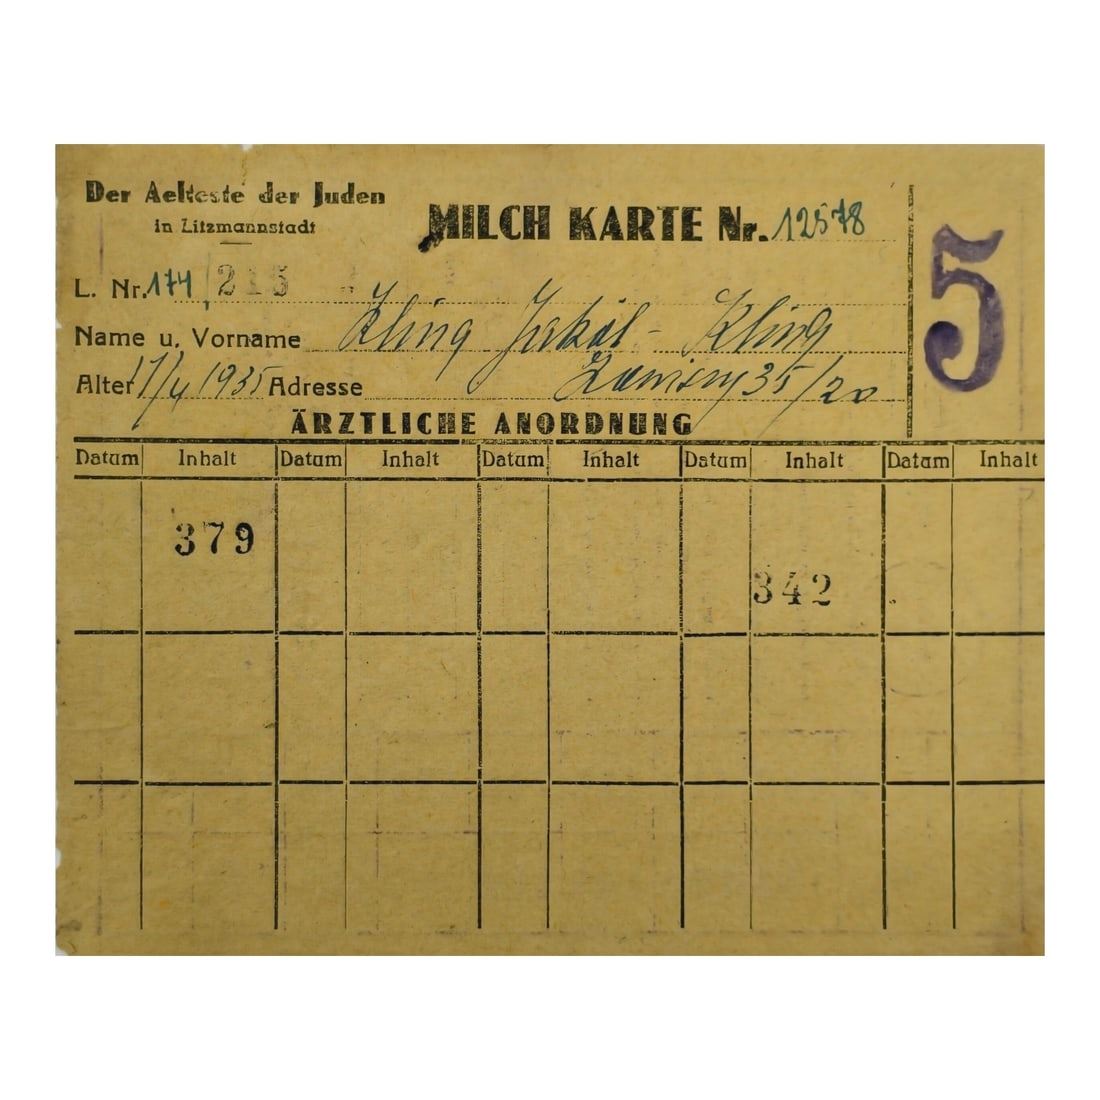 Der Aelteste der Juden
in Litzmannstadt
MILCH KARTE Nr. 12578
5
L. Nr. 174 / 215
Name u. Vorname Kling Jakób - Kling
Alter 17/4 1935 Adresse 35/20
ÄRZTLICHE ANORDNUNG
Datum Inhalt Datum Inhalt Datum Inhalt Datum Inhalt Datum Inhalt
379
342